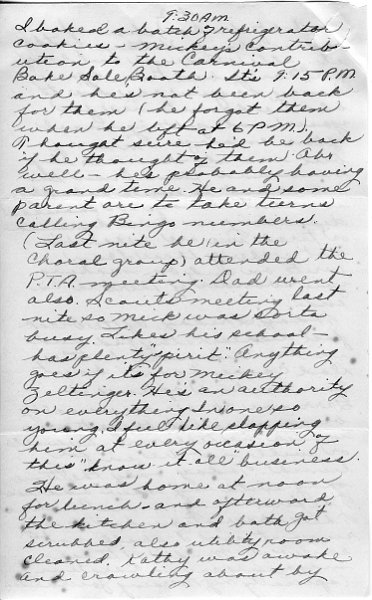 9:30 AM
I baked a batch of refrigerator
cookies - Mickey's Contrib-
ution to the Carnival
Bake Sale Booth. It's 9:15 P.M
and he's not been back
for them (he forgot them
when he left at 6 P.M.).
Thought sure he'd be back
if he thought of them.
well - he's probably having
a grand time. He and some
parent are to take turns
calling Bingo numbers.
(Last nite he (in the
Choral group) attended the
P.T.A. meeting. Dad went
also. Scouts meeting last
nite so Mick was sorta
busy. Likes his school -
has plenty "spirit". Anything
goes if it's for Mickey
Zeltinger. He's an authority
on everything. In one so
young, I feel like slapping
him at every occasion of
this "know it all" business.
He was home at noon
for lunch - and afterward
the kitchen and bath got
scrubbed, also utility room
cleaned. Kathy was awake
and crawling about by